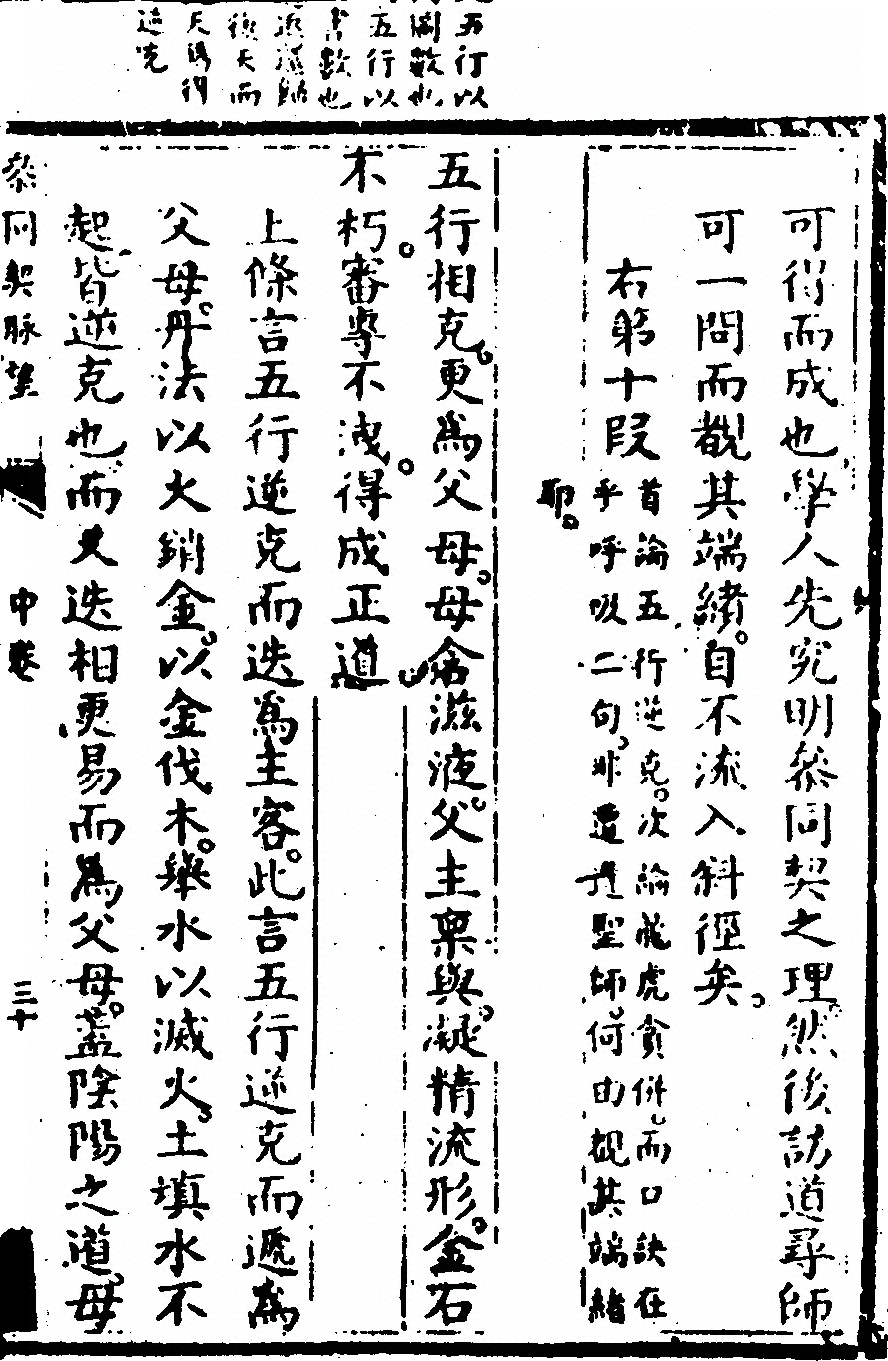 五行以
圖數也
五行以
書數也
後天而
可得而成也學人先究明叅同契之理然後訪道尋師
可一問而覩其端緒。自不流入斜徑矣。
右第十段
首論五行逆克。次論龍虎貪併。而口訣在
乎呼吸二句。非遭聖師。何由覩其端緒
耶。
五行相克。更為父母。母含滋液。父主稟與。凝精流形。金石
不朽。審專不洩。得成正道。
上條言五行逆克而迭為主客。此言五行逆克而遞為
父母。丹法以火銷金。以金伐木。舉水以滅火。土填水不
起皆逆克也而又迭相更易而為父母。蓋陰陽之道。母
叅同契脉望
中卷
三十